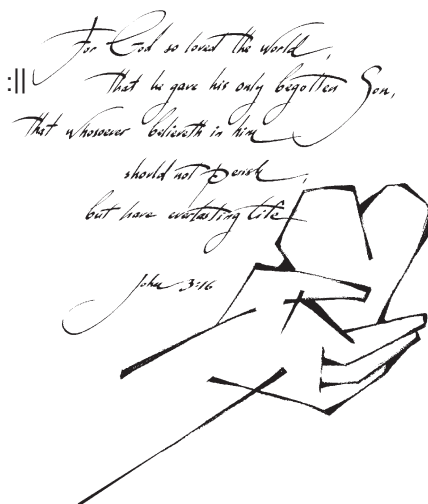 For God so loved the world,
:||
that he gave his only begotten Son,
that whosoever believeth in him
should not perish,
but have everlasting life
John 3:16